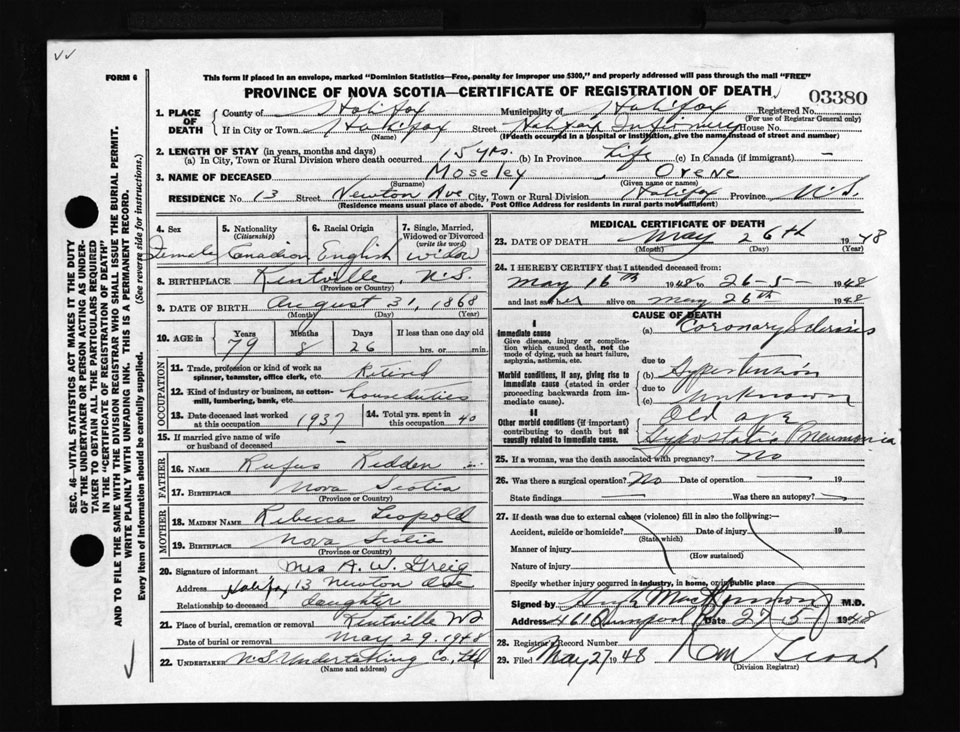 FORM 6
This form if placed in an envelope, marked "Dominion Statistics—Free, penalty for improper use $300," and properly addressed will pass through the mail "FREE"
PROVINCE OF NOVA SCOTIA—CERTIFICATE OF REGISTRATION OF DEATH
03380
1. PLACE OF DEATH
County of Halifax Municipality of Halifax Registered No.
(For use of Registrar General only)
If in City or Town Halifax Street Halifax Infirmary House No.
(Name) (If death occurred in a hospital or institution, give the name instead of street and number)
2. LENGTH OF STAY (in years, months and days)
(a) In City, Town or Rural Division where death occurred 15 yrs. (b) In Province Life (c) In Canada (if immigrant) —
3. NAME OF DECEASED Moseley, Orene
(Surname) (Given name or names)
RESIDENCE No. 13 Street Newton Ave City, Town or Rural Division Halifax Province N.S.
(Residence means usual place of abode. Post Office Address for residents in rural parts not sufficient)
4. Sex
Female
5. Nationality
(Citizenship)
Canadian
6. Racial Origin
English
7. Single, Married, Widowed or Divorced
(write the word)
widow
8. BIRTHPLACE Kentville, N.S.
(Province or Country)
9. DATE OF BIRTH August 31, 1868
(Month) (Day) (Year)
10. AGE in Years Months Days If less than one day old
79 8 26 hrs. or min.
OCCUPATION
11. Trade, profession or kind of work as spinner, teamster, office clerk, etc. Retired
12. Kind of industry or business, as cotton-mill, lumbering, bank, etc. house duties
13. Date deceased last worked at this occupation 1937
14. Total yrs. spent in this occupation 40
15. If married give name of wife or husband of deceased —
FATHER
16. NAME Rufus Ridden
17. BIRTHPLACE Nova Scotia
(Province or Country)
MOTHER
18. MAIDEN NAME Rebecca Leopold
19. BIRTHPLACE Nova Scotia
(Province or Country)
20. Signature of informant Mrs A. W. Greig
Address Halifax 13 Newton Ave
Relationship to deceased daughter
21. Place of burial, cremation or removal Kentville NS
Date of burial or removal May 29, 1948
22. UNDERTAKER N.S. Undertaking Co., Ltd
(Name and address)
MEDICAL CERTIFICATE OF DEATH
23. DATE OF DEATH May 26th 1948
(Month) (Day) (Year)
24. I HEREBY CERTIFY that I attended deceased from:
May 16th 1948 to 26-5- 1948
and last saw her alive on May 26th 1948
CAUSE OF DEATH
I
Immediate cause
Give disease, injury or complication which caused death, not the mode of dying, such as heart failure, asphyxia, asthenia, etc.
(a) Coronary Sclerosis
due to
Morbid conditions, if any, giving rise to immediate cause (stated in order proceeding backwards from immediate cause).
(b) Hypertension
due to
(c) Unknown
II
Other morbid conditions (if important) contributing to death but not causally related to immediate cause.
Old age
Hypostatic Pneumonia
25. If a woman, was the death associated with pregnancy? No
26. Was there a surgical operation? No Date of operation — 19
State findings — Was there an autopsy? —
27. If death was due to external causes (violence) fill in also the following:—
Accident, suicide or homicide? Date of injury 19
(State which)
Manner of injury
(How sustained)
Nature of injury
Specify whether injury occurred in industry, in home, or in public place
Signed by Hugh MacKinnon M.D.
Address 461 Quinpool Date 27-5- 1948
28. Registrar's Record Number
29. Filed May 27 1948
(Division Registrar)
SEC. 46—VITAL STATISTICS ACT MAKES IT THE DUTY OF THE UNDERTAKER OR PERSON ACTING AS UNDERTAKER TO OBTAIN ALL THE PARTICULARS REQUIRED IN THE "CERTIFICATE OF REGISTRATION OF DEATH" AND TO FILE THE SAME WITH THE DIVISION REGISTRAR WHO SHALL ISSUE THE BURIAL PERMIT.
WRITE PLAINLY WITH UNFADING INK. THIS IS A PERMANENT RECORD.
Every item of Information should be carefully supplied. (See reverse side for instructions.)